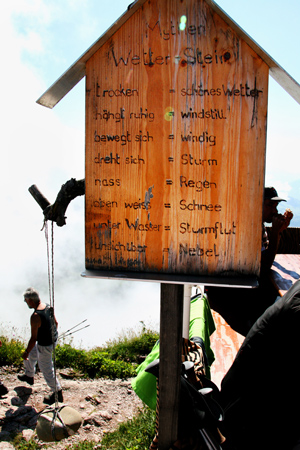 Mythen
Wetter-Stein
trocken = schönes Wetter
hängt ruhig = windstill
bewegt sich = windig
dreht sich = Sturm
nass = Regen
oben weiss = Schnee
unter Wasser = Sturmflut
unsichtbar = Nebel